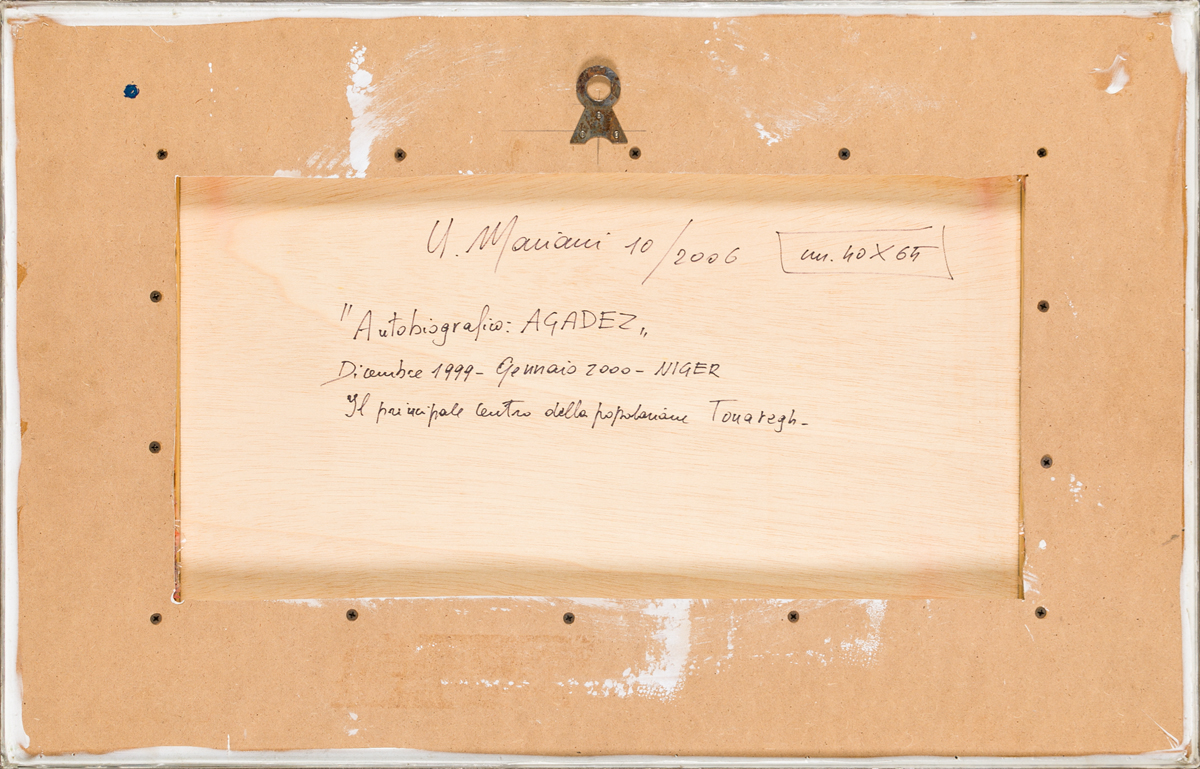 U. Mariani 10/2006 cm. 40X65
"Autobiografico: AGADEZ„
Dicembre 1999- Gennaio 2000- NIGER
Il principale centro della popolazione Touaregh-